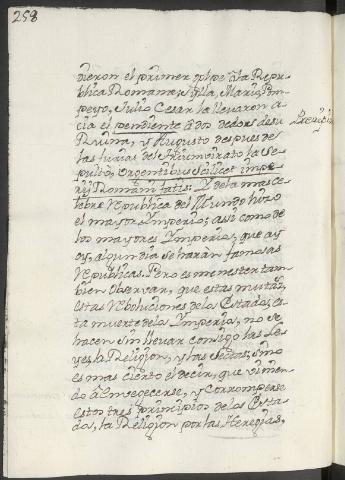 258
dieron el primer golpe à la Repu-
blica Romana; Sylla, Mario, Pom-
peyo, Julio Cesar la llevaron a-
cia el pendiente à dos dedos de su
Ruina, y Augusto despues de
las furias del Triumvirato la se-
pultò, Urgentibus scilicet impe-
rij Romani fatis: Y de la mas ce-
lebre Republica del Mundo hizo
el mayor Ymperio; asi como de
los mayores Ymperios, que ay
oy, algun dia se haràn famosas
Republicas. Pero es menester tam-
bien observar, que estas mutac.s
estas reboluciones de los Estados, es-
ta muerte de los Ymperios, no se
hacen sin llevar consigo las Le-
yes, la Religion, y las Sectas; sino
es mas cierto el decir, que vinien-
do à embegecerse, y corromperse
estos tres principios de los Esta-
dos, la Religion por las Heregias,